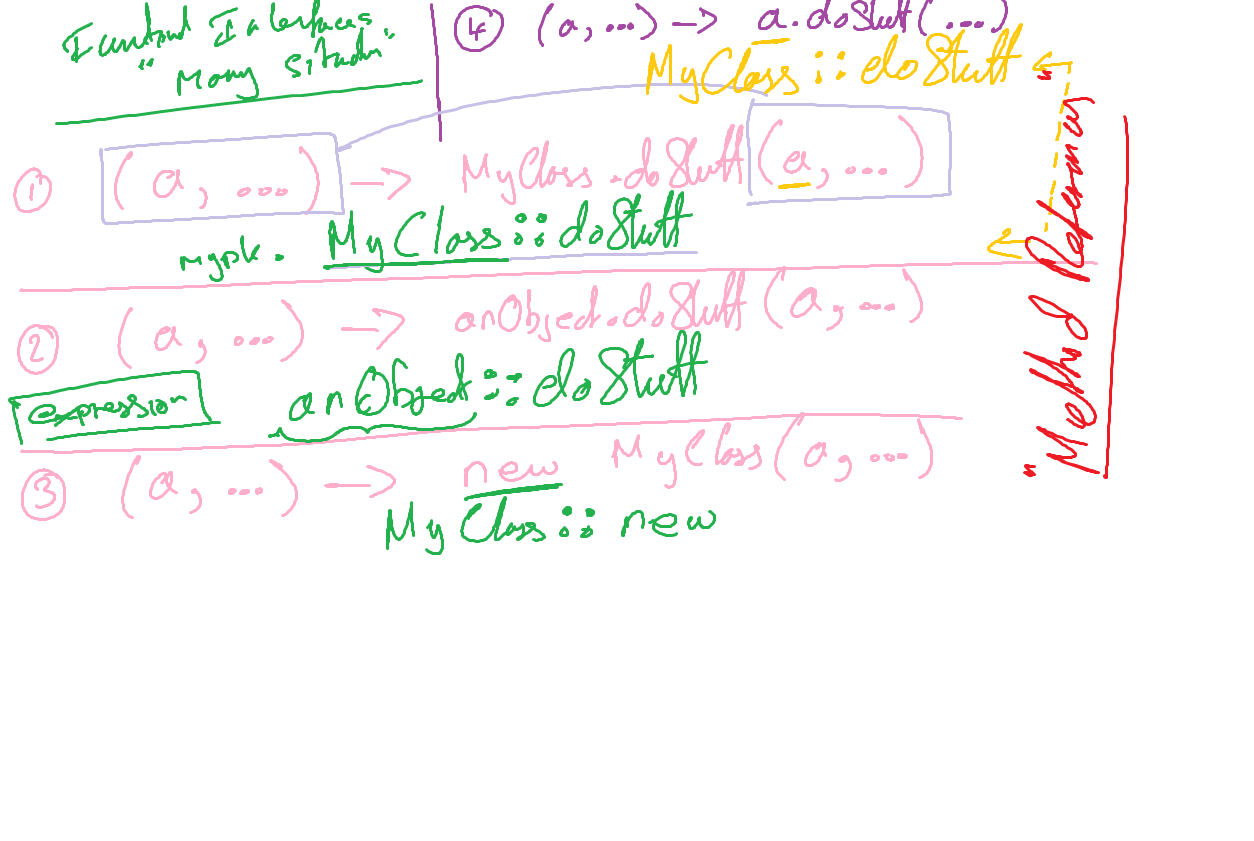 Interfaces
"Many
④ (a, ...) -> a.doStuff(...)
MyClass :: doStuff
① (a, ...) -> MyClass.doStuff(a, ...)
mypk. MyClass::doStuff
② (a, ...) -> anObject.doStuff(a, ...)
expression anObject::doStuff
③ (a, ...) -> new MyClass(a, ...)
MyClass::new
"Method References"